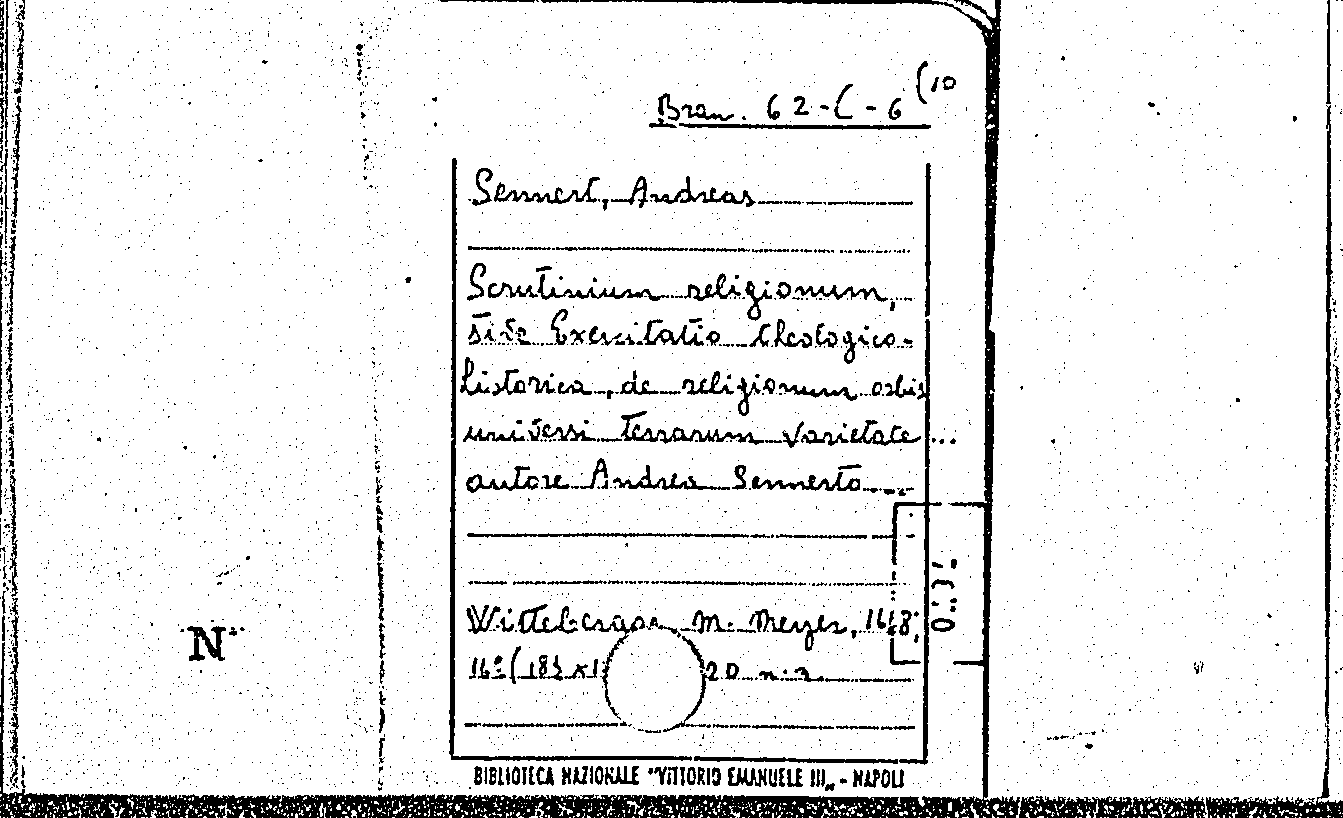 Bran. 62-C-6 (10
Sennert, Andreas
Scrutinium religionum,
sive Exercitatio theologico-
historica, de religionum orbis
universi terrarum varietate...
autore Andrea Sennerto...
Wittebergae M. Meyer,
16º (
20 n. n.
N
BIBLIOTECA NAZIONALE "VITTORIO EMANUELE III„ - NAPOLI